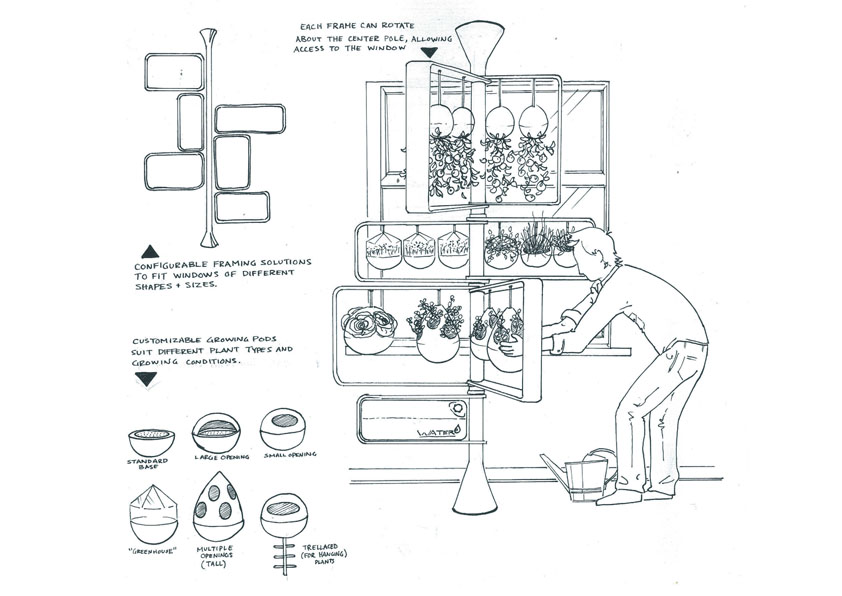 EACH FRAME CAN ROTATE
ABOUT THE CENTER POLE, ALLOWING
ACCESS TO THE WINDOW
CONFIGURABLE FRAMING SOLUTIONS
TO FIT WINDOWS OF DIFFERENT
SHAPES + SIZES.
CUSTOMIZABLE GROWING PODS
SUIT DIFFERENT PLANT TYPES AND
GROWING CONDITIONS.
STANDARD
BASE
LARGE OPENING
SMALL OPENING
"GREENHOUSE"
MULTIPLE
OPENINGS
(TALL)
TRELLACED
(FOR HANGING)
PLANTS
WATER